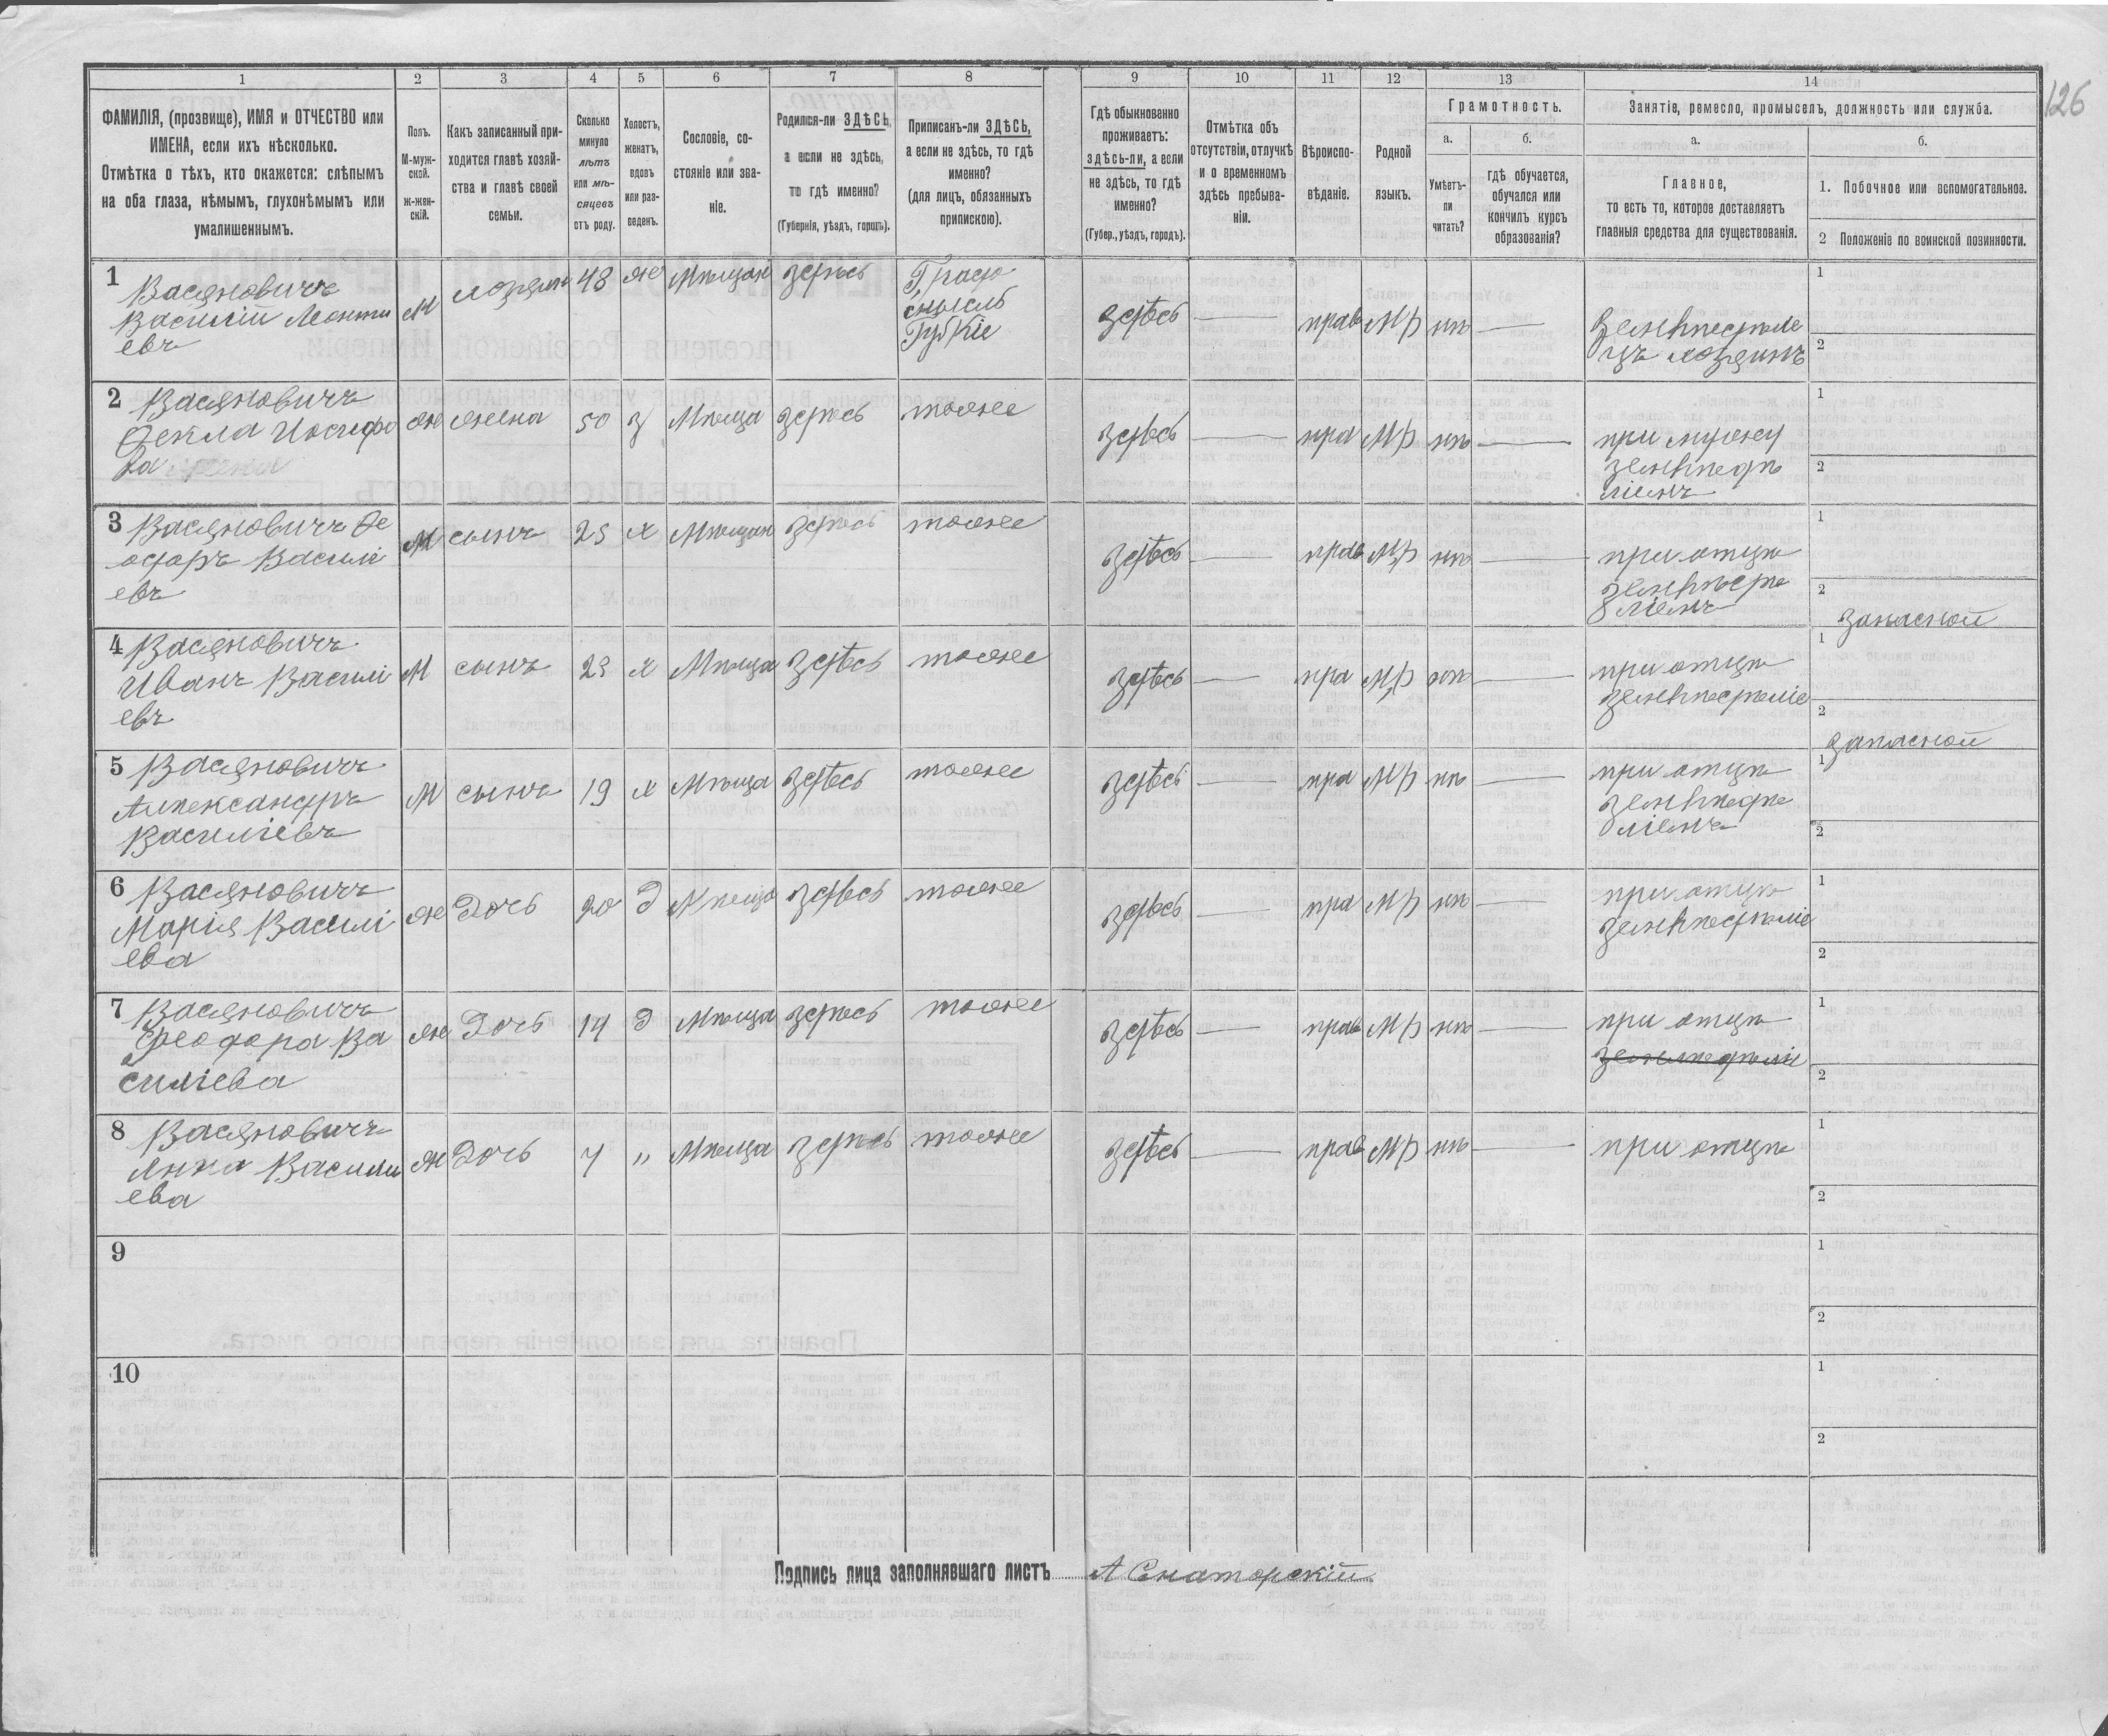 126
1 2 3 4 5 6 7 8 9 10 11 12 13 14
ФАМИЛІЯ, (прозвище), ИМЯ и ОТЧЕСТВО или
ИМЕНА, если ихъ нѣсколько.
Отмѣтка о тѣхъ, кто окажется: слѣпымъ
на оба глаза, нѣмымъ, глухонѣмымъ или
умалишеннымъ.
Полъ.
М-муж-
ской.
ж-жен-
скій.
Какъ записанный при-
ходится главѣ хозяй-
ства и главѣ своей
семьи.
Сколько
минуло
лѣтъ
или мѣ-
сяцевъ
отъ роду.
Холостъ,
женатъ,
вдовъ
или раз-
веденъ.
Сословіе, со-
стояніе или зва-
ніе.
Родился-ли ЗДѢСЬ,
а если не здѣсь,
то гдѣ именно?
(Губернія, уѣздъ, городъ).
Приписанъ-ли ЗДѢСЬ,
а если не здѣсь, то гдѣ
именно?
(для лицъ, обязанныхъ
припискою).
Гдѣ обыкновенно
проживаетъ:
здѣсь-ли, а если
не здѣсь, то гдѣ
именно?
(Губер., уѣздъ, городъ).
Отмѣтка объ
отсутствіи, отлучкѣ
и о временномъ
здѣсь пребыва-
ніи.
Вѣроиспо-
вѣданіе.
Родной
языкъ.
Грамотность.
а.
Умѣетъ-
ли
читать?
б.
гдѣ обучается,
обучался или
кончилъ курсъ
образованія?
Занятіе, ремесло, промыселъ, должность или служба.
а.
Главное,
то есть то, которое доставляетъ
главныя средства для существованія.
б.
1. Побочное или вспомогательное.
2 Положеніе по воинской повинности.
1 Васяновичъ
Василій Леонти
евъ
М хозяинъ 48 ж Мѣщан здѣсь
здѣсь — прав М.р нѣ —
хозяинъ
1
2
2 Васяновичъ
Фекла Иосифо
ва
ж жена 50 з Мѣща здѣсь тоже
здѣсь — пра М.р нѣ —
при мужу
1
2
3 Васяновичъ Фе
одоръ Василі
евъ
М сынъ 25 х Мѣщан здѣсь тоже
здѣсь — прав М.р нѣ —
при отцѣ
1
2 запасной
4 Васяновичъ
Иванъ Василі
евъ
М сынъ 23 х Мѣща здѣсь тоже
здѣсь — пра М.р нѣ —
при отцѣ
1
2 запасной
5 Васяновичъ
Александръ
Василіевъ
М сынъ 19 х Мѣща здѣсь тоже
здѣсь — пра М.р нѣ —
при отцѣ
1
2
6 Васяновичъ
Марія Василі
ева
ж Дочь 20 д Мѣща здѣсь тоже
здѣсь — пра М.р нѣ —
при отцѣ
1
2
7 Васяновичъ
Феодора Ва
силіева
ж Дочь 14 д Мѣща здѣсь тоже
здѣсь — прав М.р нѣ —
при отцѣ
1
2
8 Васяновичъ
Анна Васили
ева
ж Дочь 7 " Мѣща здѣсь тоже
здѣсь — прав М.р нѣ —
при отцѣ
1
2
9
1
2
10
1
2
Подпись лица заполнявшаго листъ А Сенаторскій